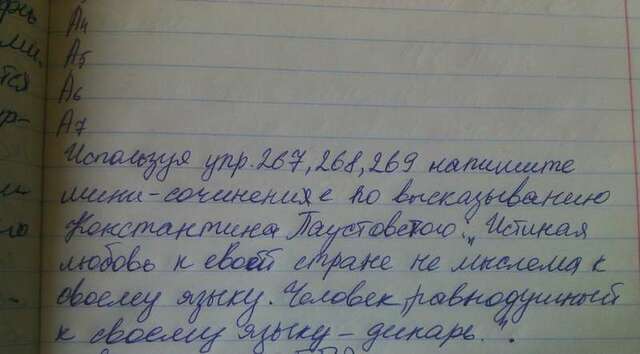 А4
А5
А6
А7
Используя упр. 267, 268, 269 напишите
мини-сочинения с по высказыванию
Констант​ина Паустовского. „Истиная
любовь к своей стране не мыслема к
своему языку. Человек, равнодушный
к своему языку – дикарь.".